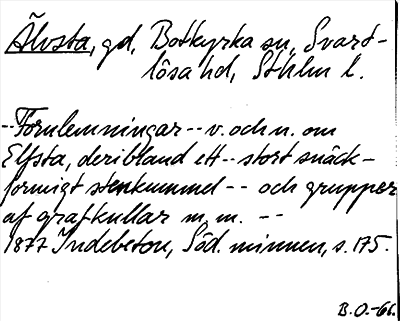 Älvsta, gd, Botkyrka sn, Svart-
lösa hd, Sthlm l.
--Fornlemningar-- v. och n. om
Elfsta, deribland ett-- stort snäck-
formigt stenkummel -- och grupper
af grafkullar m. m. --
1877 Indebetou, Söd. minnen, s. 175.
B. O.-66.